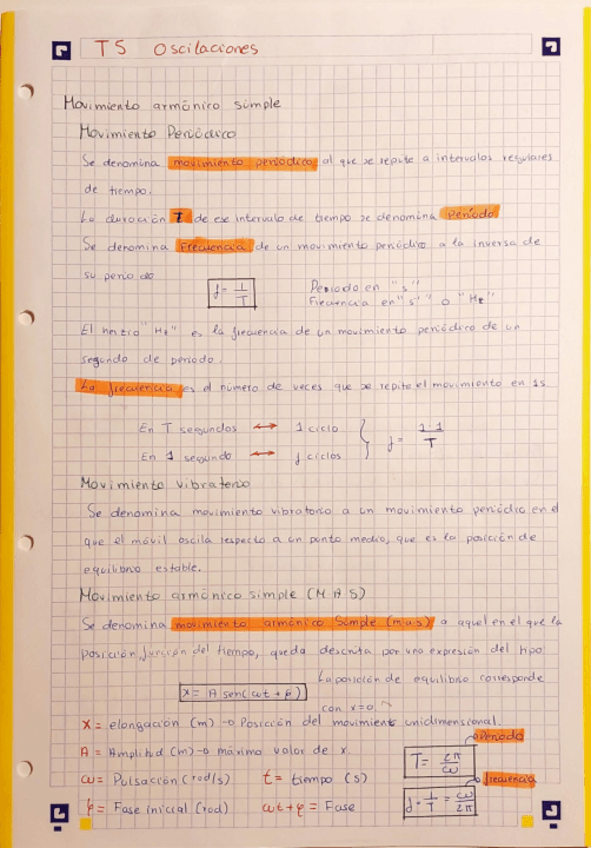 T5 Oscilaciones
Movimiento armónico simple
Movimiento Periódico
Se denomina movimiento periódico al que se repite a intervalos regulares
de tiempo.
La duración T de ese intervalo de tiempo se denomina Período
Se denomina Frecuencia de un movimiento periódico a la inversa de
su periodo
f = 1/T
Periodo en "s"
Frecuencia en "s⁻¹" o "Hz"
El hertzio "Hz" es la frecuencia de un movimiento periódico de un
segundo de período.
La frecuencia es el número de veces que se repite el movimiento en 1s
En T segundos ↔ 1 ciclo
En 1 segundo ↔ f ciclos
f = 1·1/T
Movimiento vibratorio
Se denomina movimiento vibratorio a un movimiento periódico en el
que el móvil oscila respecto a un punto medio, que es la posición de
equilibrio estable.
Movimiento armónico simple (MAS)
Se denomina movimiento armónico Simple (m.a.s) a aquel en el que la
posición, función del tiempo, queda descrita por una expresión del tipo:
x = A sen(ωt + φ)
La posición de equilibrio corresponde
con x=0.
X = elongación (m) → Posición del movimiento unidimensional.
A = Amplitud (m) → máximo valor de x.
ω = Pulsación (rad/s) t = tiempo (s)
φ = Fase inicial (rad) ωt+φ = Fase
Período
T = 2π/ω
frecuencia
f = 1/T = ω/2π